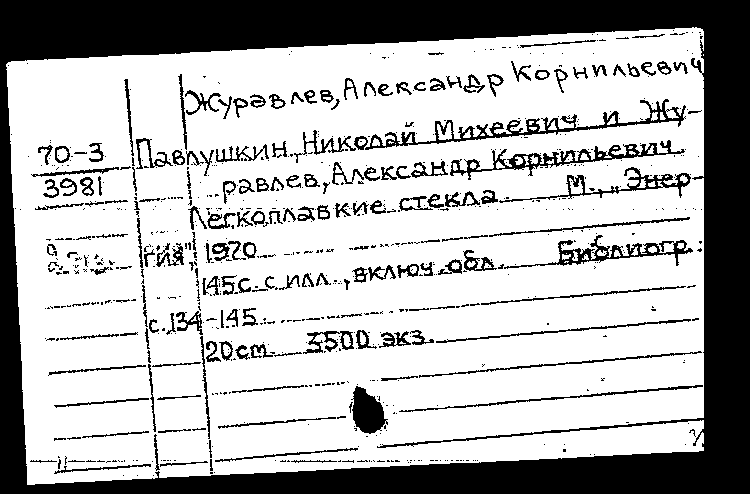 Журавлев, Александр Корнильевич
70-3 Павлушкин, Николай Михеевич и Жу-
3981 равлев, Александр Корнильевич.
Легкоплавкие стекла. М., „Энер-
гия", 1970
145 с. с илл., включ. обл. Библиогр.:
с. 134-145.
20 см. 3500 экз.